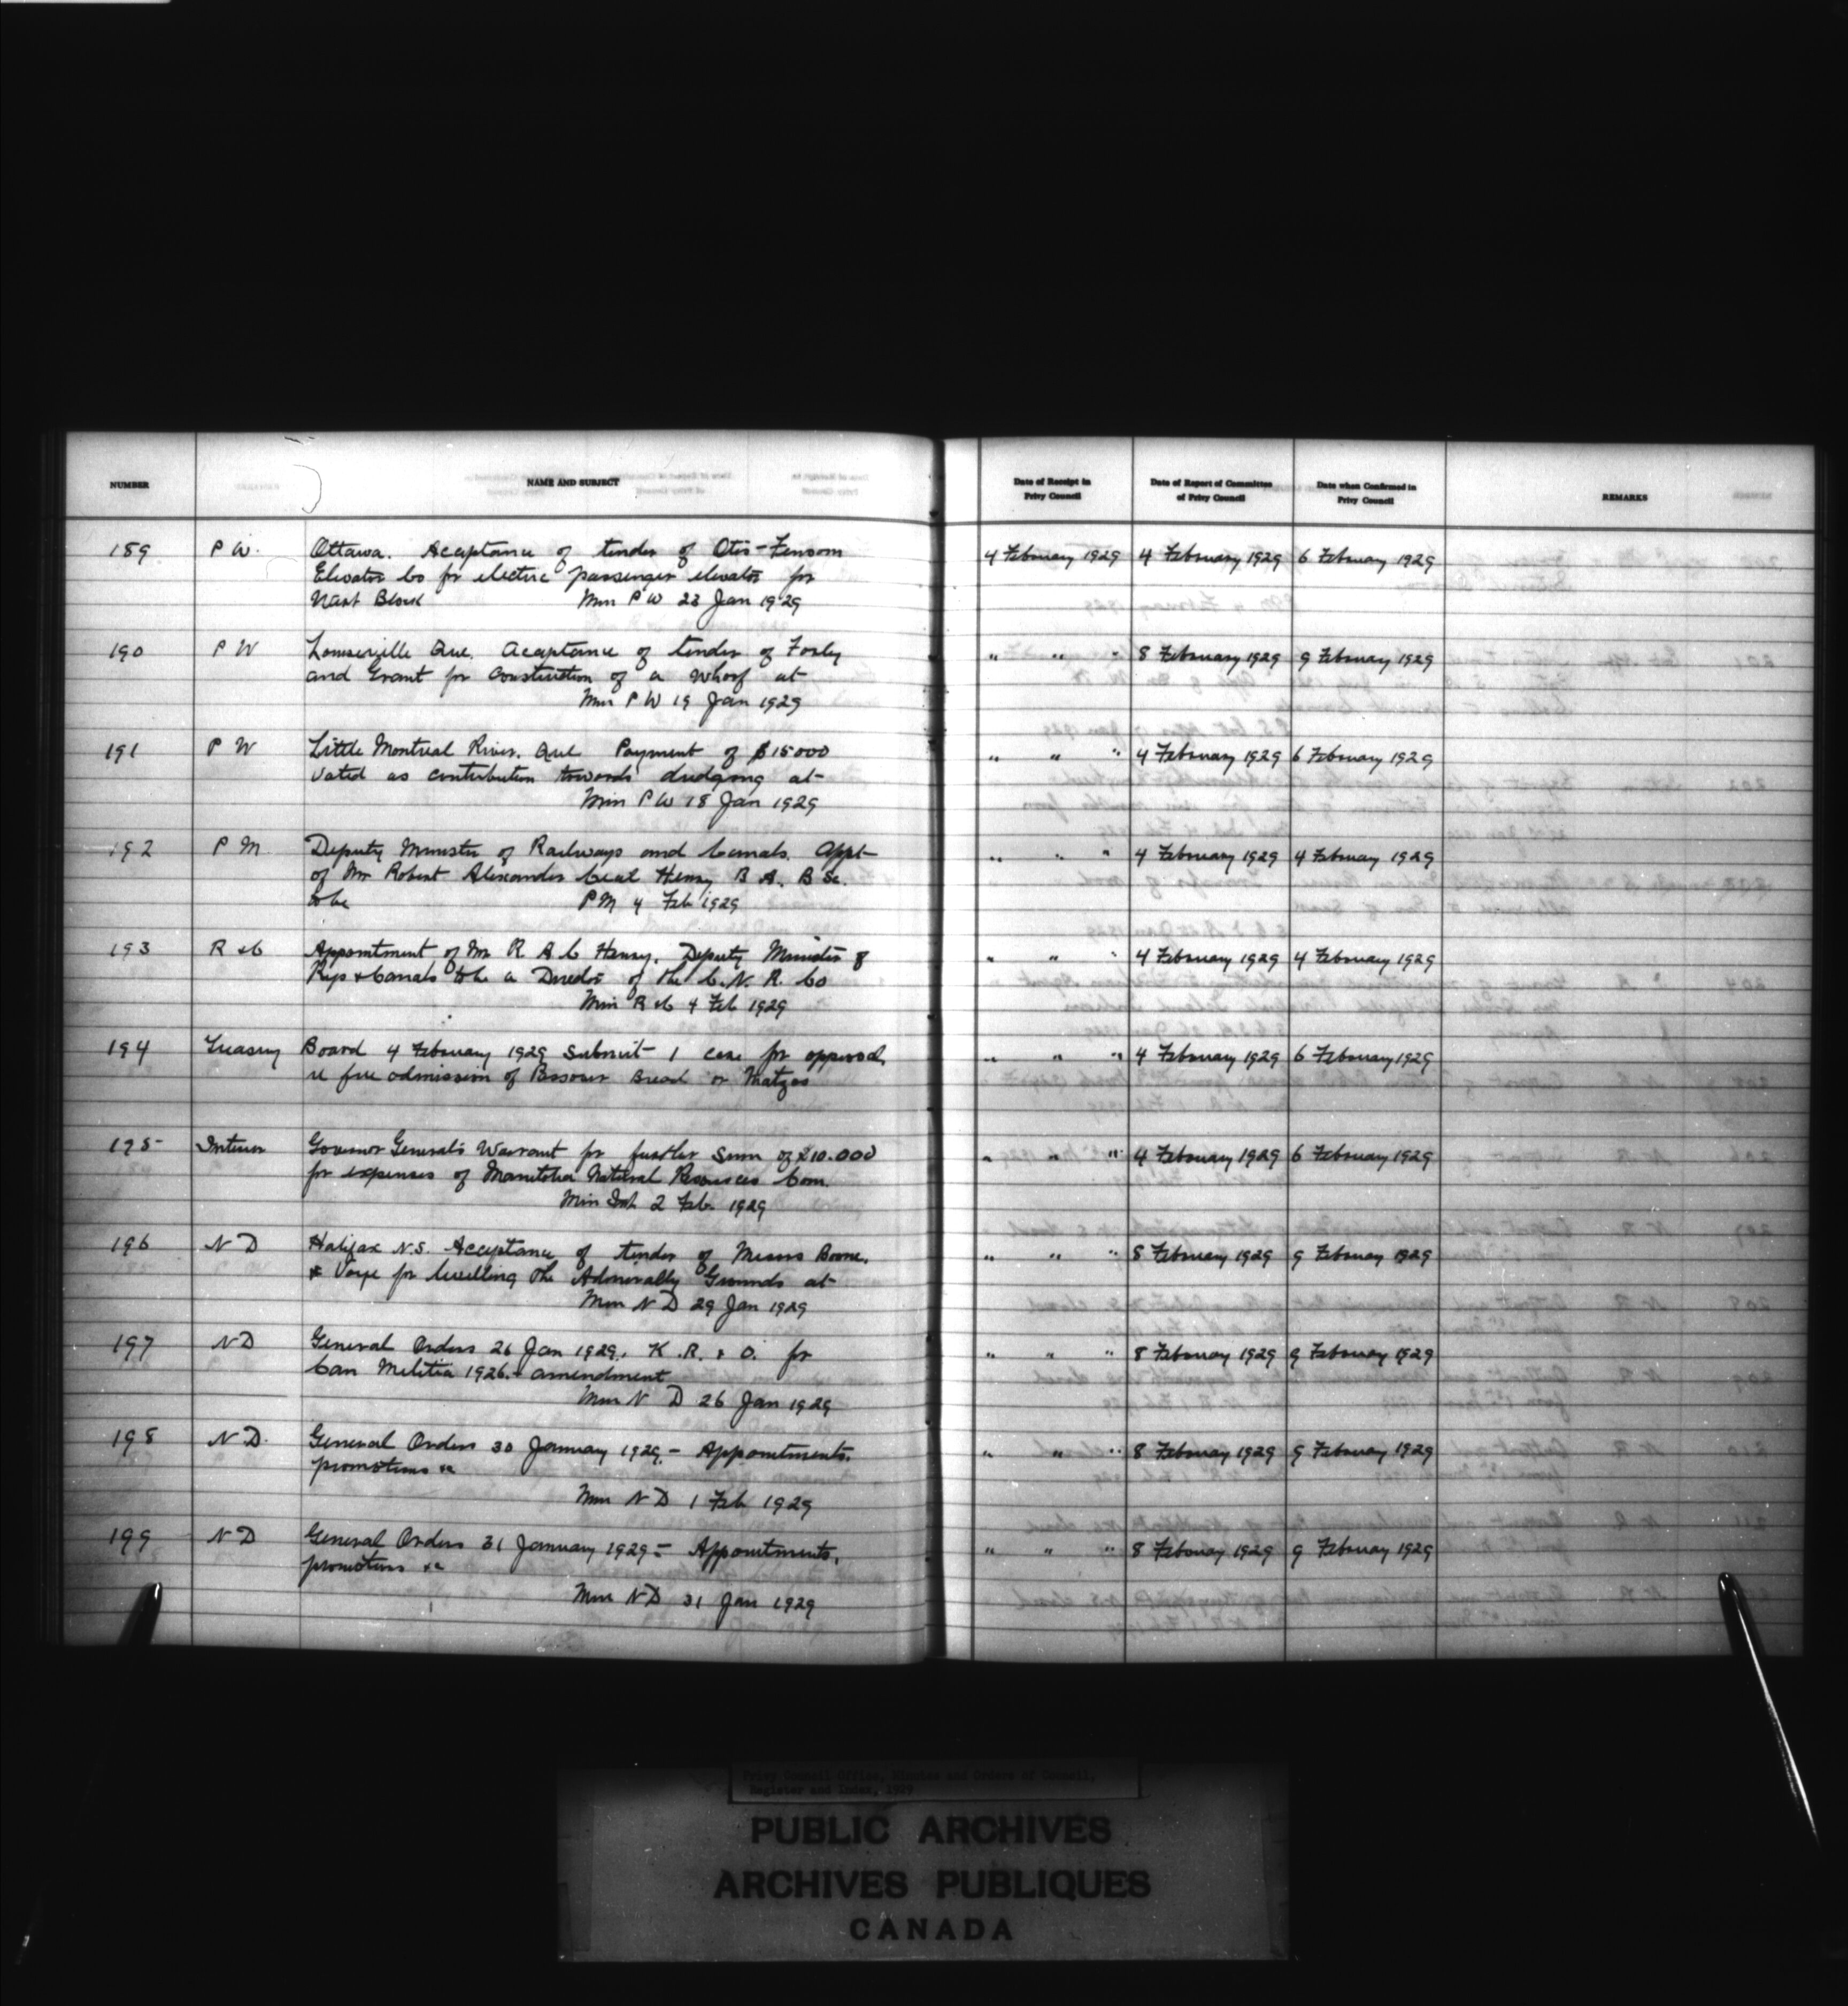 NUMBER
NAME AND SUBJECT
Date of Receipt in Privy Council
Date of Report of Committee of Privy Council
Date when Confirmed in Privy Council
REMARKS
189 P W. Ottawa. Acceptance of tender of Otis-Fensom 4 February 1929 4 February 1929 6 February 1929
Elevator Co for electric passenger elevator for
Block Min P W 23 Jan 1929
190 P W Louiseville Que. Acceptance of tender of " " " 8 February 1929 9 February 1929
and Grant for construction of a wharf at
Min P W 19 Jan 1929
191 P W Little Montreal River. Que Payment of $15000 " " " 4 February 1929 6 February 1929
voted as contribution towards dredging at
Min P W 18 Jan 1929
192 P M Deputy Minister of Railways and Canals. Appt " " " 4 February 1929 4 February 1929
of Mr Robert Alexander Cecil Henry B A. B Sc.
to be P M 4 Feb 1929
193 R & C Appointment of Mr R A C Henry. Deputy Minister of " " " 4 February 1929 4 February 1929
Rys & Canals to be a Director of the C. N. R. Co
Min R & C 4 Feb 1929
194 Treasury Board 4 February 1929 submit 1 case for approval " " " 4 February 1929 6 February 1929
re free admission of Passover Bread or Matzos
195 Interior Governor General's Warrant for further sum of $10.000 " " " 4 February 1929 6 February 1929
for expenses of Manitoba Natural Resources Com.
Min Int. 2 Feb. 1929
196 N D Halifax N.S. Acceptance of tender of Messrs Boone. " " " 8 February 1929 9 February 1929
& for levelling the Admiralty Grounds at
Min N D 29 Jan 1929
197 N D General Orders 26 Jan 1929. K. R. & O. for " " " 8 February 1929 9 February 1929
Can Militia 1926. - amendment
Min N D 26 Jan 1929
198 N D. General Orders 30 January 1929. - Appointments. " " " 8 February 1929 9 February 1929
promotions &c
Min N D 1 Feb 1929
199 N D General Orders 31 January 1929 - Appointments. " " " 8 February 1929 9 February 1929
promotions &c
Min N D 31 Jan 1929
Privy Council Office, Minutes and Orders of Council,
Register and Index, 1929
PUBLIC ARCHIVES
ARCHIVES PUBLIQUES
CANADA